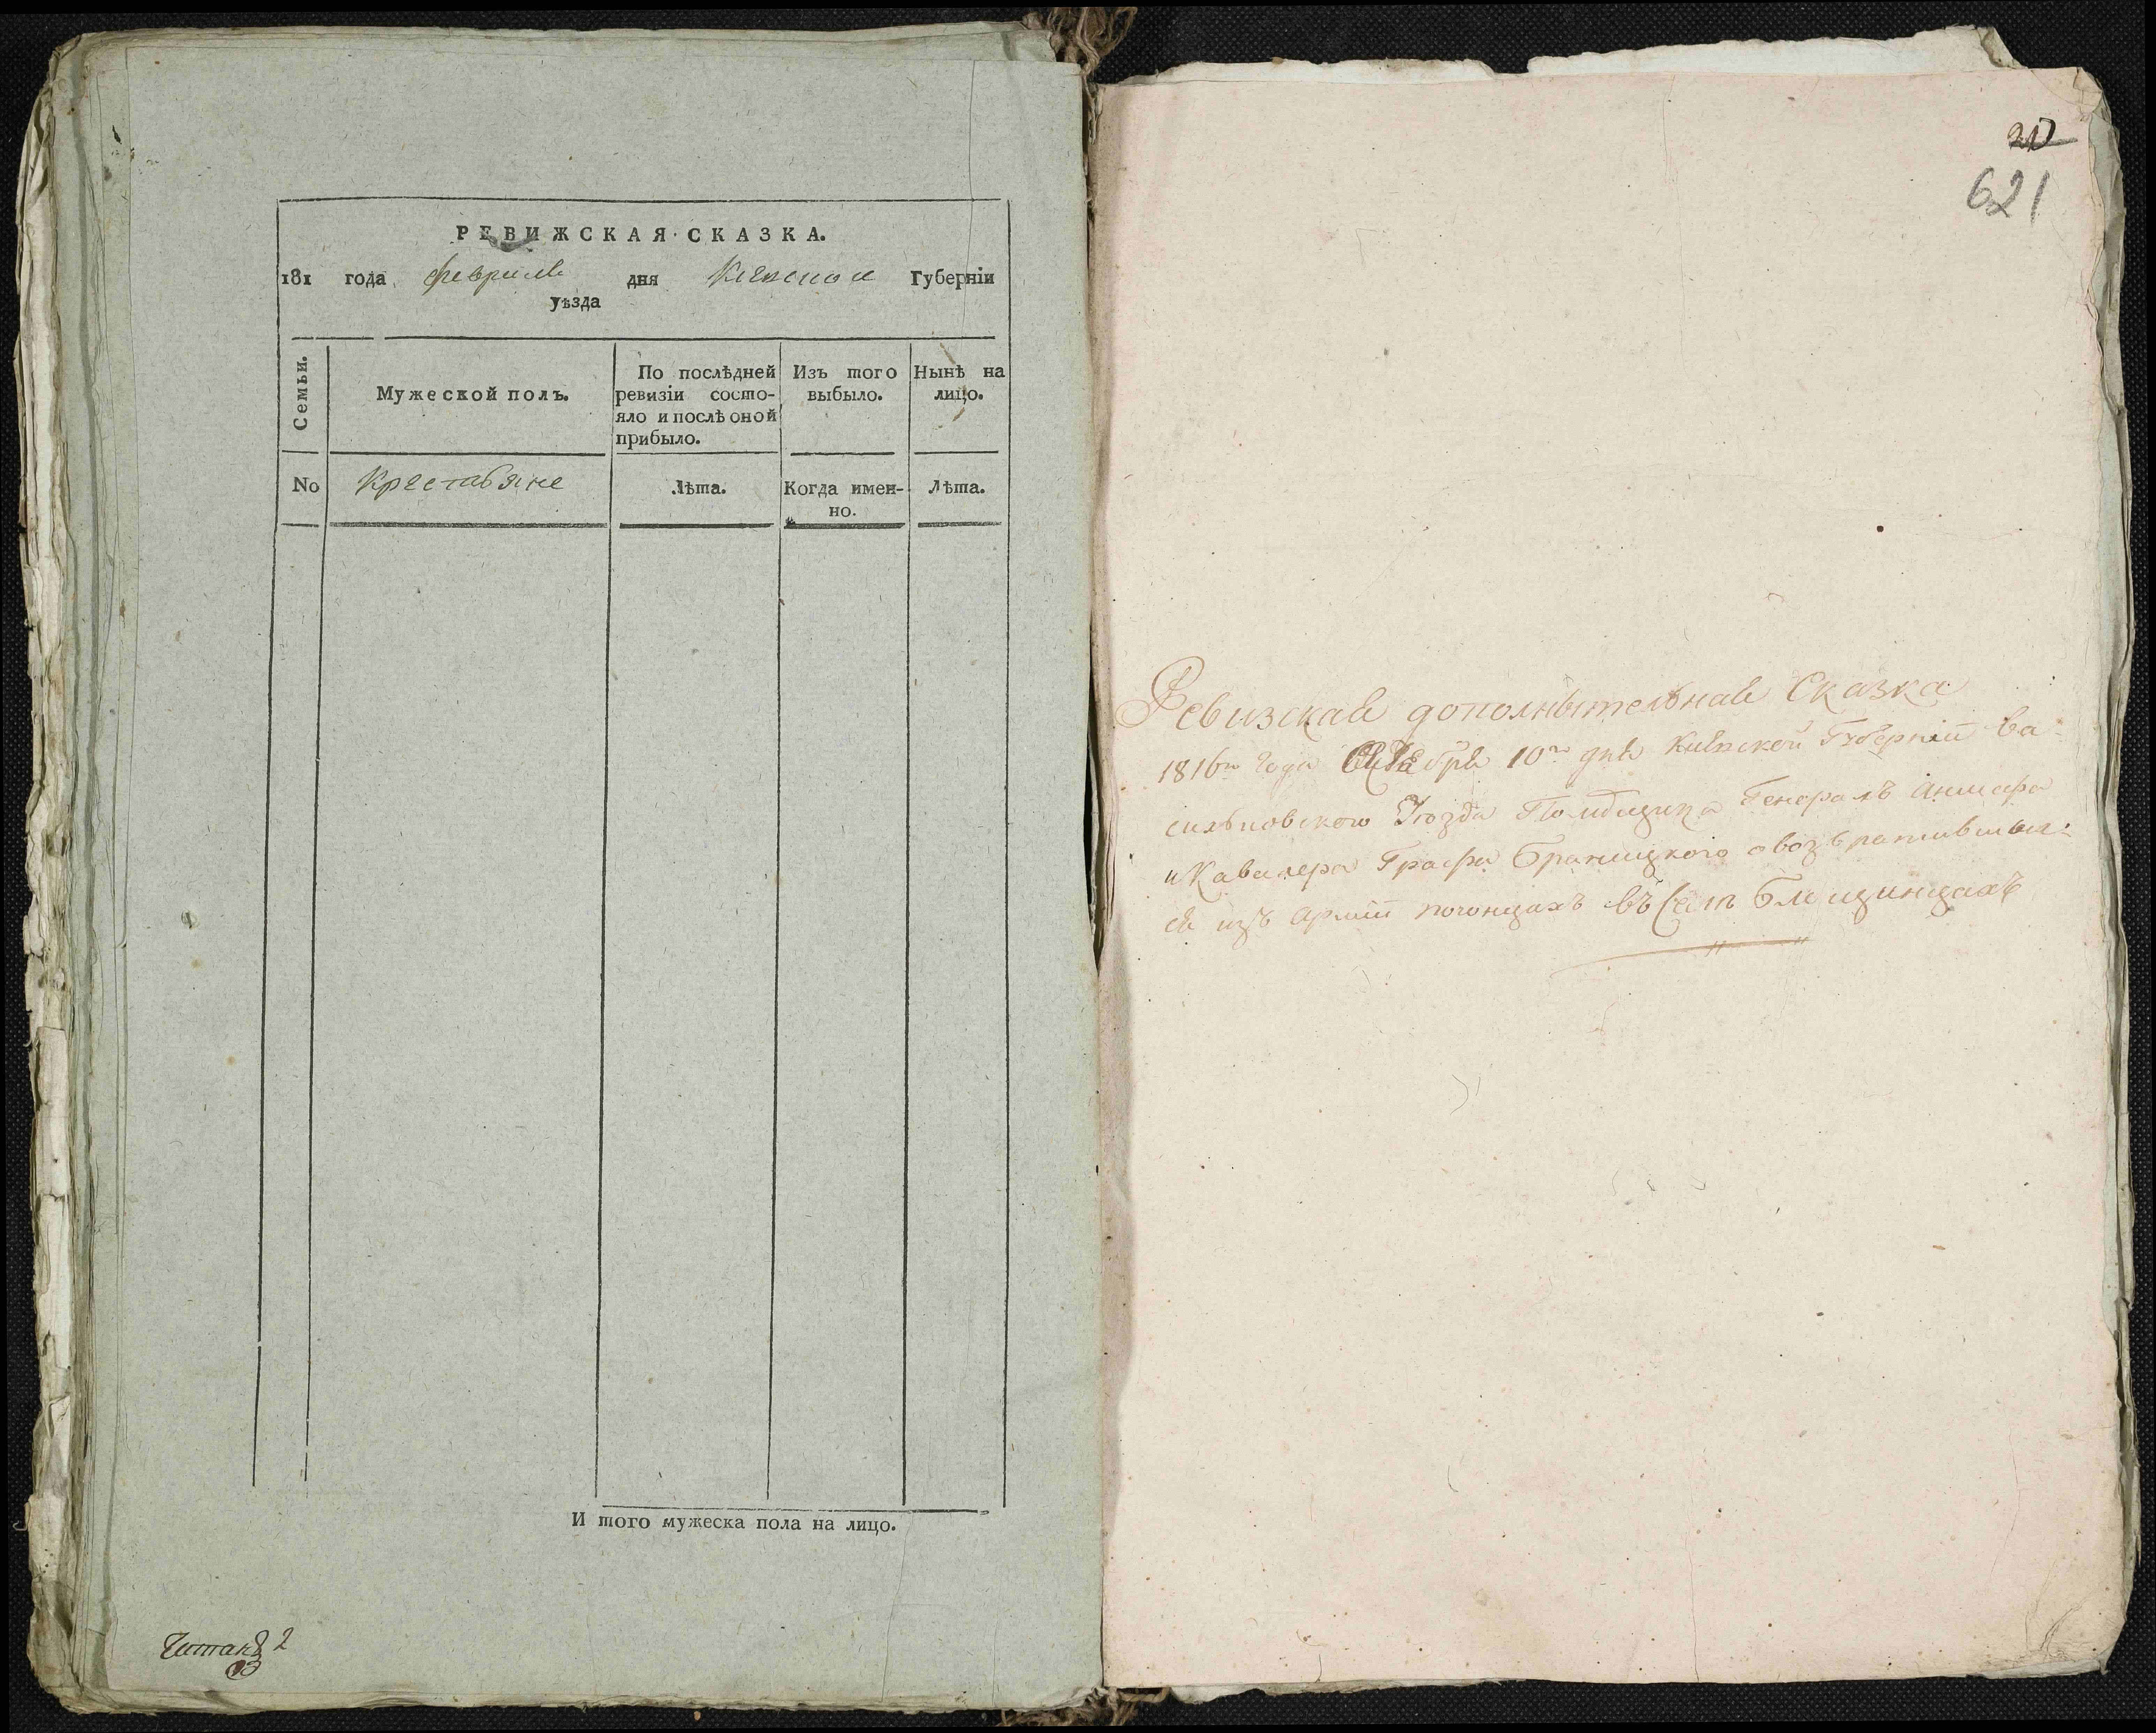 РЕВИЖСКАЯ СКАЗКА.
181 года февраля дня Киевской Губерніи
уѣзда
Семьи.
Мужеской полъ.
По послѣдней
ревизіи состо-
яло и послѣ оной
прибыло.
Изъ того
выбыло.
Нынѣ на
лицо.
No
Крестьяне
Лѣта.
Когда имен-
но.
Лѣта.
И того мужеска пола на лицо.
2
621
Ревизская дополнытельная Сказка
1816го года 10го дня Киевской Губерніи Ва-
сильковского Уезда Помѣщика Генералъ Аншефа
и Кавалера Графа Браницкого о возвратившых-
ся изъ Арміи погонцахъ въ Селе